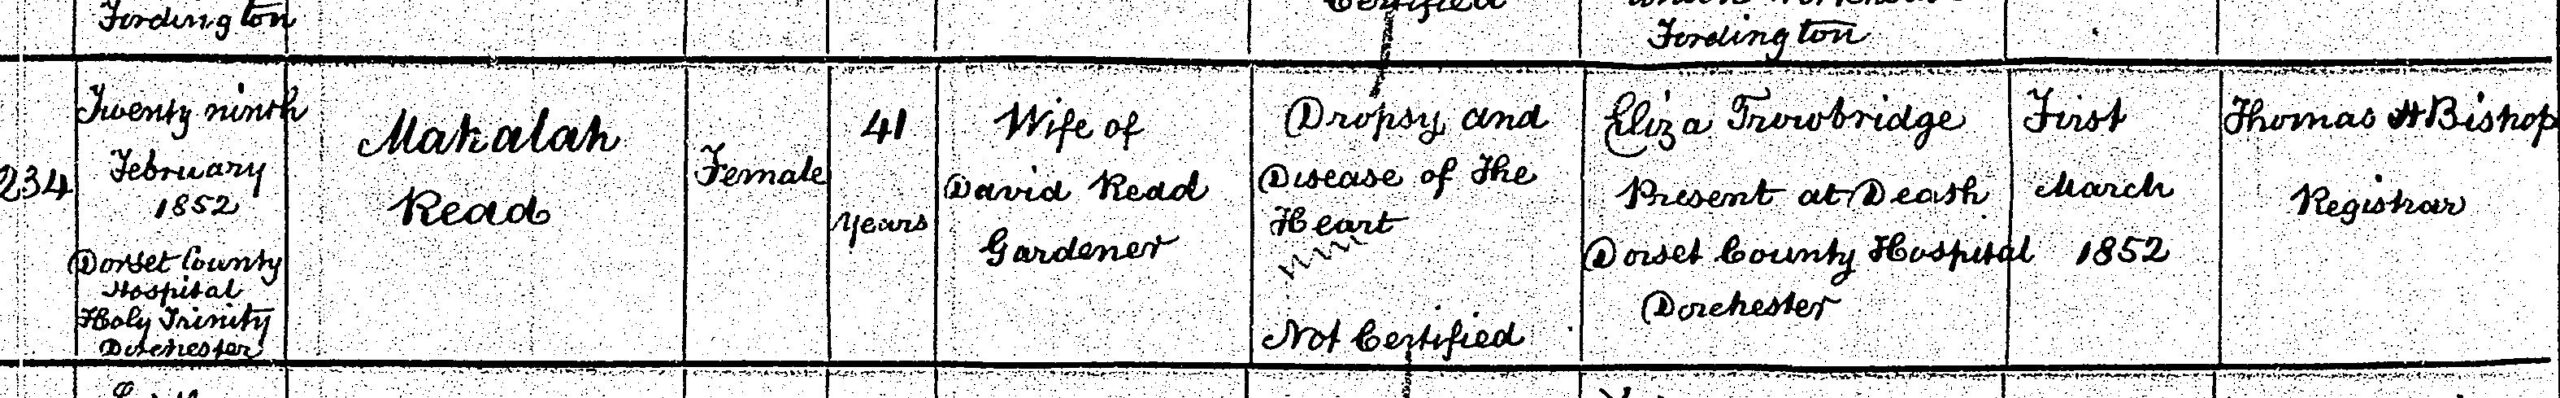 Fordington
Certified
Fordington
234
Twenty ninth
February
1852
Dorset County
Hospital
Holy Trinity
Dorchester
Mahalah
Read
Female
41
years
Wife of
David Read
Gardener
Dropsy and
Disease of the
Heart
Not Certified
Eliza Trowbridge
Present at Death
Dorset County Hospital
Dorchester
First
March
1852
Thomas H Bishop
Registrar